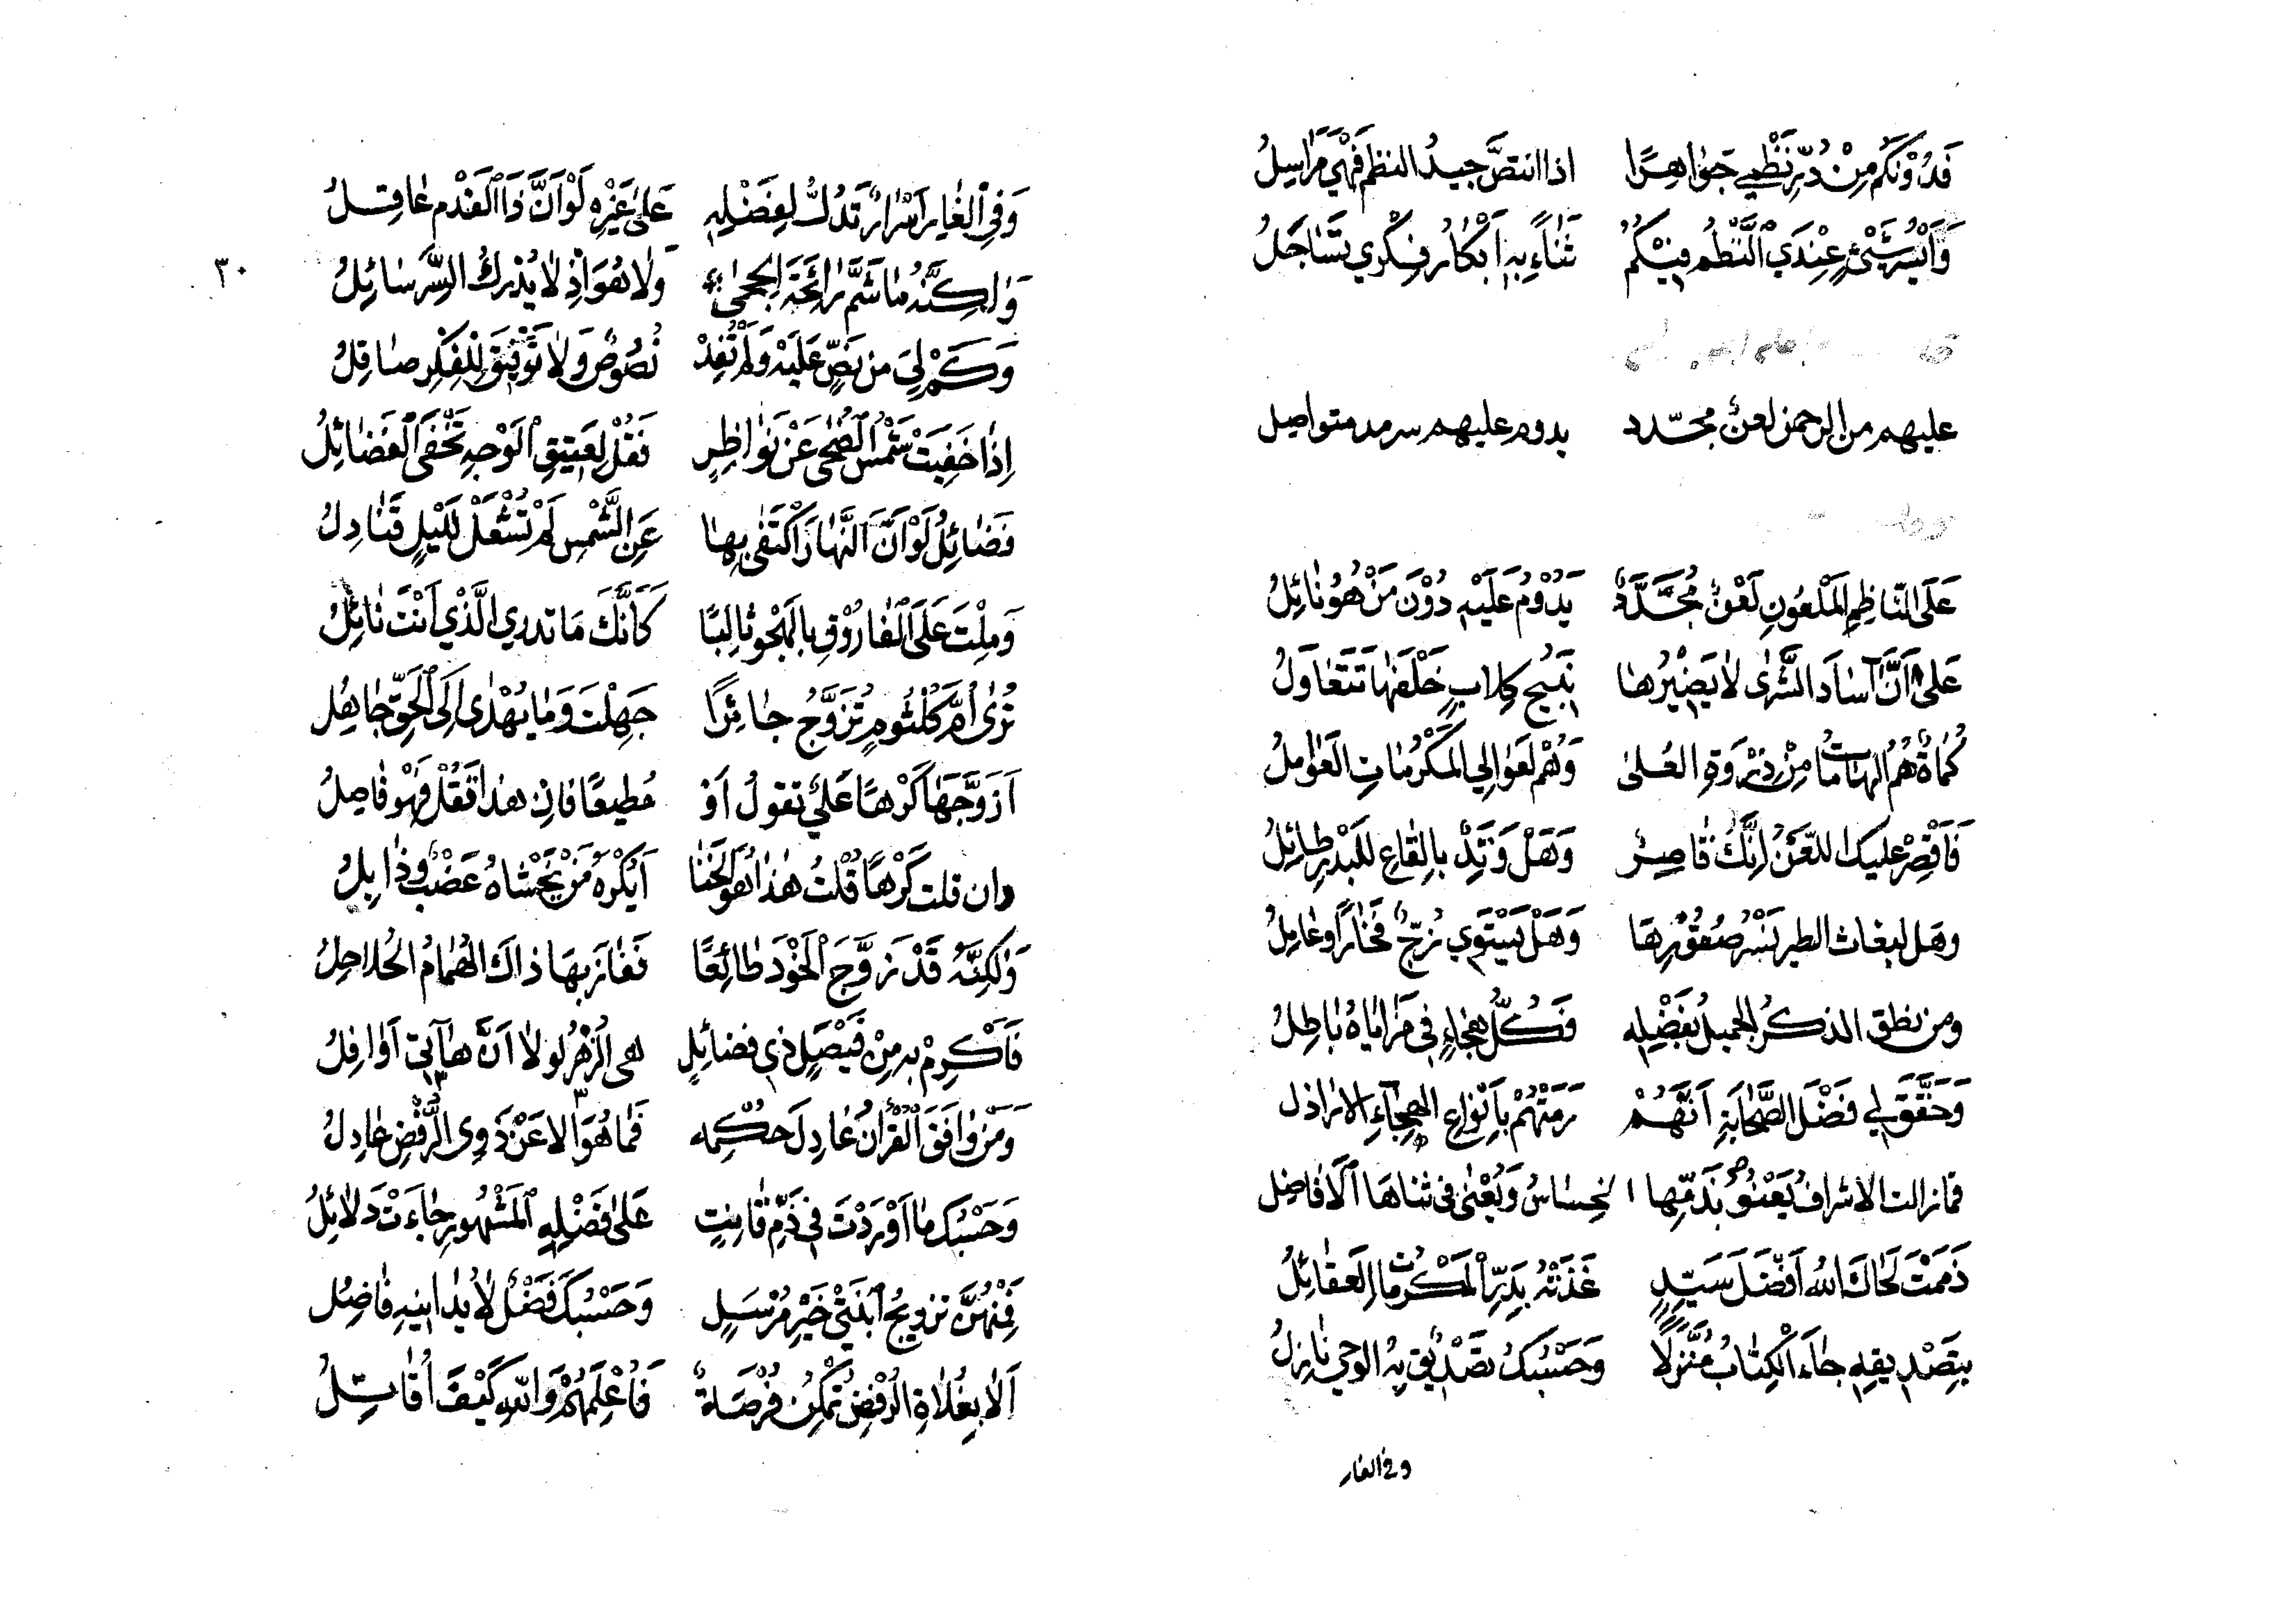 فَدُوْنَكُم مِنْ دُرِّ نَظْمِي جَوٰاهِرًا اذا انتصَّ جيدُ النظم فَهْيَ مَرَاسِلُ
وَاَيْسَرُ شَيْئٍ عِنْدِيَ النَّظْمُ فِيْكُمُ ثَنٰاءً بِهِ اَبْكارُ فِكْري تُسٰاجِلُ
عليهم من الرحمن لعنٌ مجدّد يدوم عليهم سرمد متواصل
عَلَى النّاظِمِ المَلْعُونِ لَعْنٌ مُجَدَّدٌ يَدُوْمُ عَلَيْهِ دُوْنَ مَنْ هُوُ نائِلُ
عَلىٰ اَنَّ آسٰادَ الشَّرٰى لا يَضِيْرُها نَبِيحُ كِلابٍ خَلْفَهٰا تَتَعٰاوَلُ
كُمٰاةٌ هُمُ الهاماتُ مِنْ ذِرْوَةِ العُلىٰ وَهُمْ لعَوٰالِي المَكْرُمٰاتِ العَوٰامِلُ
فَاَقْصِرْ عليك اللعْنَ اِنَّكَ قٰاصِرٌ وَهَلْ وَتِدٌ بِالقٰاعِ لِلْبَدْرِ طٰائِلُ
وهَل لبغاث الطير نَسْرُ صُقُوْرِهَا وَهَلْ يَسْتَوي زُجٌّ فَخٰارًا وعٰامِلُ
ومن نطق الذكرُ الجميلُ بفَضْلِهِ فَكُلُّ هِجٰاءٍ في مَزٰايٰاهُ بٰاطِلُ
وَحَقَّقَ لِي فَضْلَ الصَّحٰابَةِ اَنَّهُمْ رَمَتْهُمْ بِاَنْوٰاعِ الهِجٰاءِ الاراذل
فمازالت الاشرافُ يَعْنُو بذَمِّها الخِسٰاسُ وَيُعْنىٰ في ثناهَا الاَفٰاضِل
ذَمَمْتَ لَحٰاكَ اللهُ اَفْضَلَ سَيِّدٍ غَذَتْهُ بِدَرِّ المَكْرُماتِ العَقٰائِلُ
بِتَصْدِيقِهِ جٰاءَ الْكِتٰابُ مُنَزَّلًا وَحَسْبُكَ تَصْدِيْقٌ بِهِ الوحيُ نٰازِلُ
وفي الغار
٣٠
وَفِي الْغٰارِ اَسْرٰارٌ تَدُلُّ لِفَضْلِهِ عَلىٰ غَيْرِهِ لَوْ اَنَّ ذَا الْفَدْمَ عٰاقِلُ
وَلٰكِنَّهُ مٰا شَمَّ رٰائِحَةَ الحِجىٰ وَلا هُوَ اِذْ لا يُدْرِكُ السِّرَّ سٰائِلُ
وَكَمْ لِيَ من نَصٍّ عَلَيْهِ وَلَمْ تُفِدْ نُصُوصٌ وَلا تَوْفِيقَ لِلْفِكْرِ صٰاقِلُ
اِذٰا خَفِيَتْ شَمْسُ الضُّحىٰ عَنْ نَوٰاظِرٍ فَقُلْ لِعَتِيقِ الوَجْهِ تَخْفَى الْفَضٰائِلُ
فَضٰائِلُ لَوْ اَنَّ النَّهٰارَ اكْتَفٰى بِهٰا عَنِ الشَّمْسِ لَمْ تُشْعَلْ لِلَيْلٍ قَنٰادِلُ
وَمِلْتَ عَلَى الْفٰارُوْقِ بِالهَجْوِ ثٰالِبًا كَاَنَّكَ مَا تدري الَّذْي اَنْتَ قٰائِلُ
تُرٰى اُمُّ كُلْثُومٍ تُزَوَّجُ جٰائِرًا جَهِلْتَ وَمٰا يُهْدٰى اِلَى الْحَقِّ جٰاهِلُ
اَزَوَّجَهٰا كَرْهًا عَلِيٌّ تقولُ اَوْ مُطيعًا فاِنْ هذا تَقُلْ فَهْوَ فٰاصِلُ
وان قلت كَرْهًا قُلْتُ هٰذٰا هُوَ الخَنٰا اَيُكْرَهُ مَنْ يَخْشٰاهُ عَضْبٌ وذٰابِلُ
وَلٰكِنَّهُ قَدْ زَوَّجَ الْخَوْدَ طٰائِعًا فَفٰازَ بِهَا ذاكَ الهُمٰامُ الحُلاحِلُ
فَاَكْرِمْ بِهِ مِنْ فَيْصَلٍ ذي فضائِلٍ هي الزُهْرُ لولا اَنَّ هاتي اَوٰافِلُ
وَمَنْ وٰافَقَ الْقُرْآنُ عٰادِلَ حُكْمِه فَمٰا هُوَ الا عَنْ ذَوِي الرَّفْضِ عٰادِلُ
وَحَسْبُكَ مٰا اَوْرَدْتَ في ذَمِّ قٰانِتٍ عَلىٰ فَضْلِهِ المَشْهُورِ جٰاءَتْ دَلائِلُ
فَمِنْهُنَّ تزويجُ ابْنَتَيْ خَيْرِ مُرْسَلٍ وَحَسْبُكَ فَضْلٌ لا يُدٰانِيهِ فٰاضِلُ
اَلا بِغُلاةِ الرَّفْضِ تُمْكِنُ فُرْصَةٌ فَاُعْلِمَهُمْ وَاللهِ كَيْفَ اُقٰاتِلُ